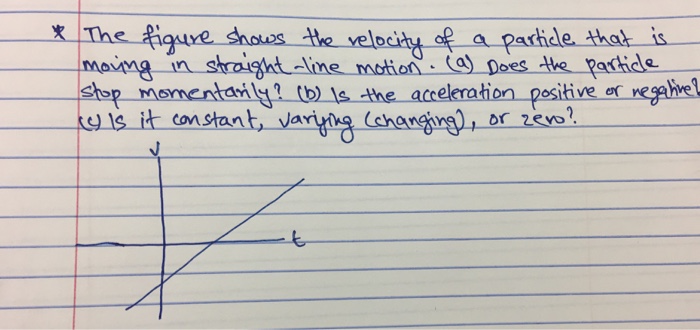 * The figure shows the velocity of a particle that is
moving in straight-line motion. (a) Does the particle
stop momentarily? (b) Is the acceleration positive or negative?
(c) Is it constant, varying (changing), or zero?
v
t